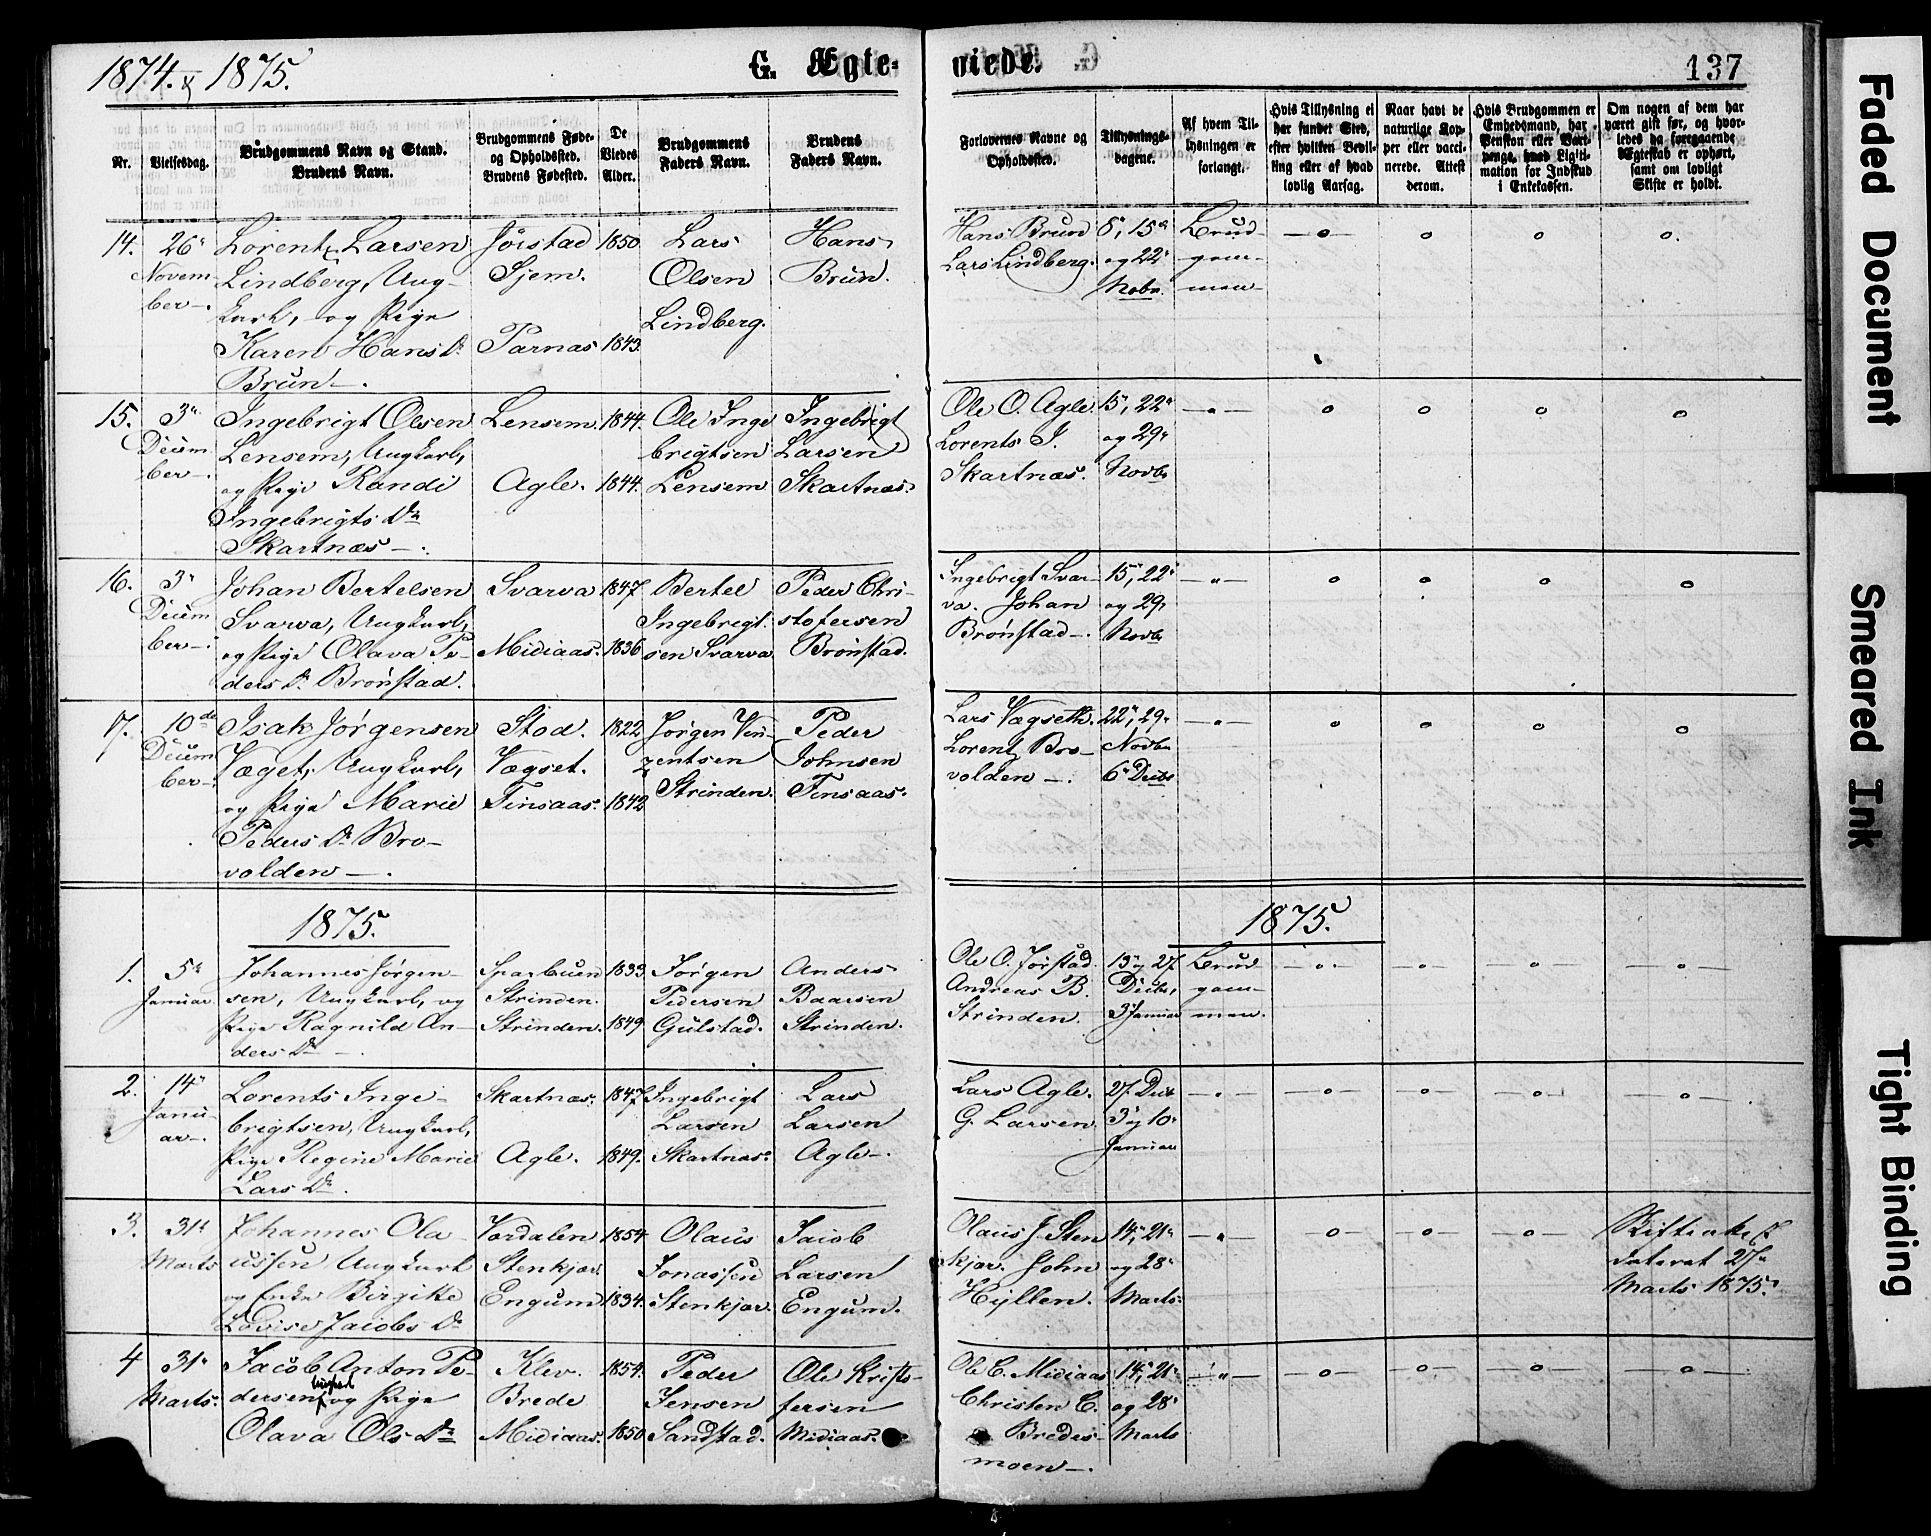 1874. & 1875.
G. Ægte-
viede.
137
Nr.
Vielsesdag.
Brudgommens Navn og Stand.
Brudens Navn.
Brudgommens Føde-
og Opholdssted.
Brudens Fødested.
De
Viedes
Alder.
Brudgommens
Faders Navn.
Brudens
Faders Navn.
Forlovernes Navne og
Opholdssted.
Tillysnings-
dagene.
Af hvem Til-
lysningen er
forlangt.
Hvis Tillysning ei
har fundet Sted,
efter hvilken Bevil-
ling eller af hvad
lovlig Aarsag.
Naar havt de
naturlige Kop-
per eller vacci-
nerede. Attest
derom.
Hvis Brudgommen er
Embedsmand, har
Pension eller Vart-
penge, hvad Ligiti-
mation for Indskud
i Enkekassen.
Om nogen af dem har
været gift før, og hvor-
ledes da foregaaende
Ægteskab er ophørt,
samt om lovligt
Skifte er holdt.
14.
26"
Novem-
ber
Lorentz Larsen
Lindberg, Ung-
karl, og Pige
Karen Hans Dr
Brun
Jørstad
Sjem.
Parnas
1850
1843.
Lars
Olsen
Lindberg.
Hans
Brun.
Hans Brun
Lars Lindberg.
8", 15"
og 22"
Novbr
Brud-
gom-
men
15.
3"
Decem
ber
Ingebrigt Olsen
Lensem, Ungkarl,
og Pige Randi
Ingebrigts Dr
Skartnæs
Lensem.
Agle.
1844.
1844.
Ole Inge
brigtsen
Lensem
Ingebrigt
Larsen
Skartnæs.
Ole O. Agle.
Lorents I.
Skartnæs.
15", 22"
og 29"
Novbr
16.
3"
Decem
ber
Johan Bertelsen
Svarva, Ungkarl,
og Pige Olava Pe-
ders Dr Brønstad.
Svarva
Midiaas.
1847
1836
Bertel
Ingebrigt-
sen Svarva
Peder Chri-
stofersen
Brønstad.
Ingebrigt Svar-
va. Johan
Brønstad
15", 22"
og 29"
Novbr
17.
10de
Decem
ber
Isak Jørgensen
Væget, Ungkarl,
og Pige Marie
Peders Dr Bro-
volden
Stod.
Vægset.
Finsaas.
1822
1842
Jørgen Vin-
zentsen
Strinden.
Peder
Johnsen
Finsaas.
Lars Vægseth.
Lorentz Bro-
volden
22", 29"
Novbr
6" Decbr
1875.
1875.
1.
5"
Januar
Johannes Jørgen-
sen, Ungkarl, og
Pige Ragnild An-
ders Dr
Sparbuen
Strinden.
Strinden.
1833
1849
Jørgen
Pedersen
Gulstad.
Anders
Baarsen
Strinden.
Ole O. Jørstad
Andreas B.
Strinden.
13" og 27
Decbr,
3 Januar
Brud-
gom-
men.
2.
14"
Janu-
ar
Lorents Inge-
brigtsen, Ungkarl,
Pige Regine Marie
Lars Dr
Skartnæs.
Agle.
1847
1849.
Ingebrigt
Larsen
Skartnæs
Lars
Larsen
Agle
Lars Agle.
G. Larsen
27 Decbr
3" og 10"
Januar
3.
31"
Marts
Johannes Ola-
ussen Ungkarl
og Enke Birgitte
Lovise Jacobs Dr
Værdalen
Stenkjær
Engum
1854
1834.
Olaus
Jonassen
Stenkjær
Jacob
Larsen
Engum.
Olaus J. Sten
kjær. John
Hyllen.
14", 21"
og 28"
Marts
Skifteattest
dateret 27de
Marts 1875.
4
31"
Marts.
Jacob Anton Pe-
dersen Ungkarl og Pige
Olava Ols Dr
Klev.
Brede
Midiaas.
1854.
1850
Peder
Jensen
Sandstad.
Ole Krist-
fersen
Midiaas.
Ole C. Midiaas
Christen C.
Bredes-
moen
14", 21"
og 28"
Marts
Faded Document
Smeared Ink
Tight Binding